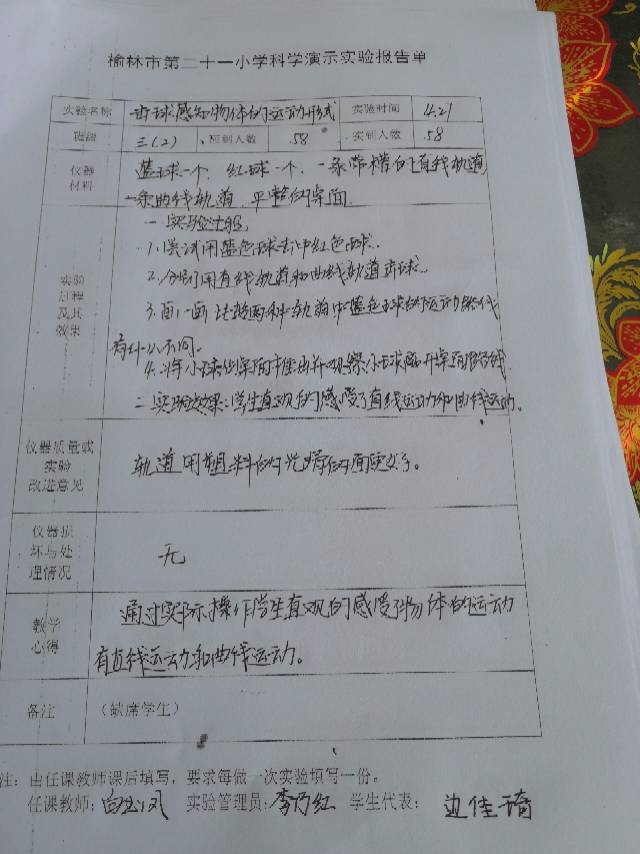 榆林市第二十一小学科学演示实验报告单
实验名称 击球感知物体的运动形式 实验时间 4.21
班级 三(2) 应到人数 58 实到人数 58
仪器材料 蓝球一个、红球一个、一条带槽的直线轨道
一条曲线轨道、平整的桌面
实验过程及其效果
一 实验过程
1.尝试用蓝色球击中红色球.
2.分别用直线轨道和曲线轨道击球.
3.画一画 比较两种轨道中蓝色球的运动路线
有什么不同.
4.将小球从桌面推出并观察小球离开桌面路线
二 实验效果:学生直观的感受了直线运动和曲线运动.
仪器质量或实验改进意见 轨道用塑料的光滑的更好了。
仪器损坏与处理情况 无
教学心得 通过实际操作学生直观的感受到物体的运动
有直线运动和曲线运动。
备注 (缺席学生)
注:由任课教师课后填写,要求每做一次实验填写一份。
任课教师:白 凤 实验管理员:李乃红 学生代表:边佳琦